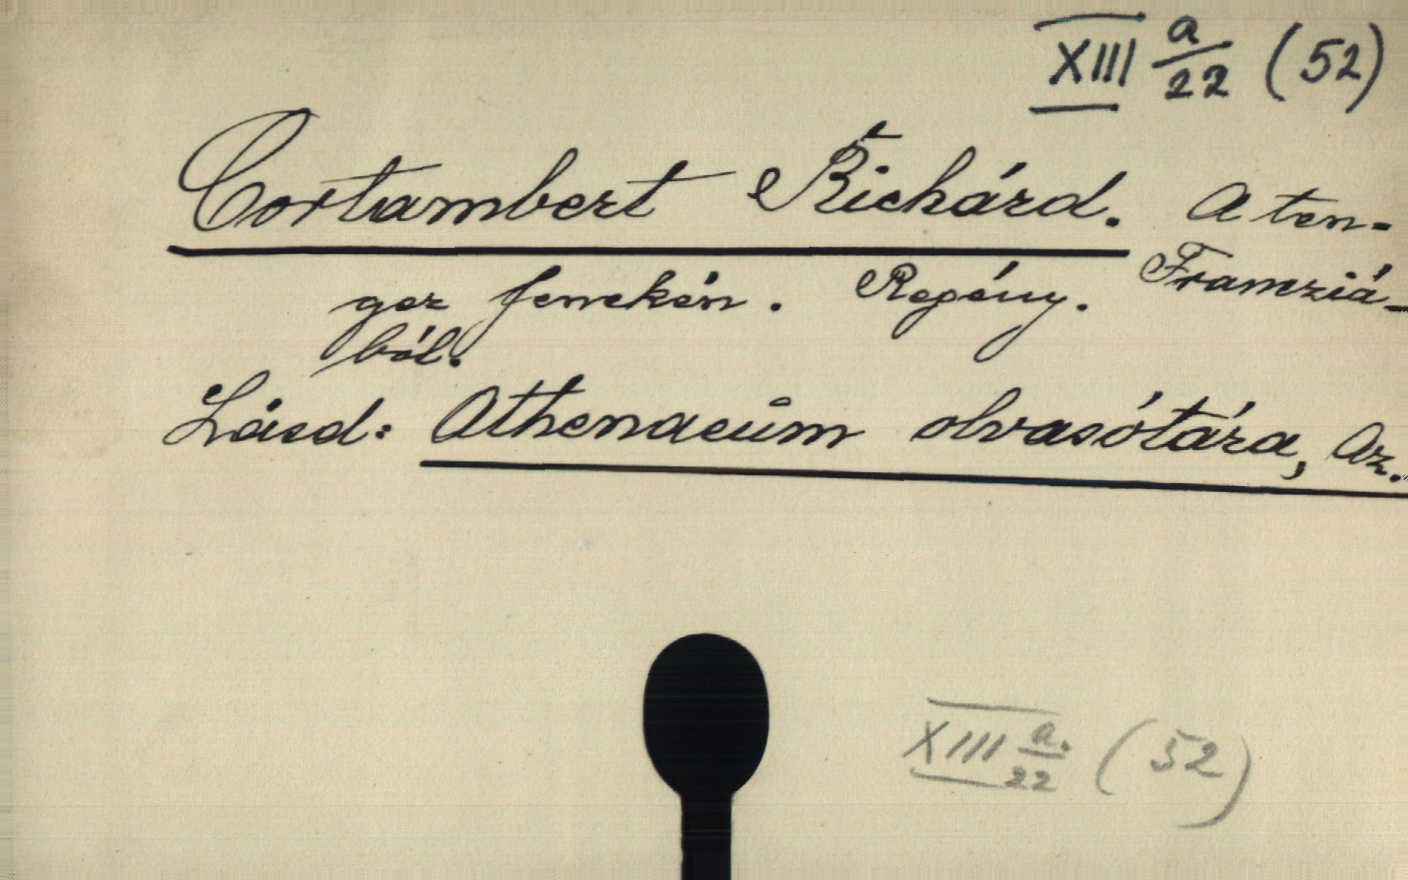 XIII a/22 (52)
Cortambert Richárd. A ten-
ger fenekén. Regény. Francziá-
ból.
Lásd: Athenaeum olvasótára, Az.
XIII a./22 (52)